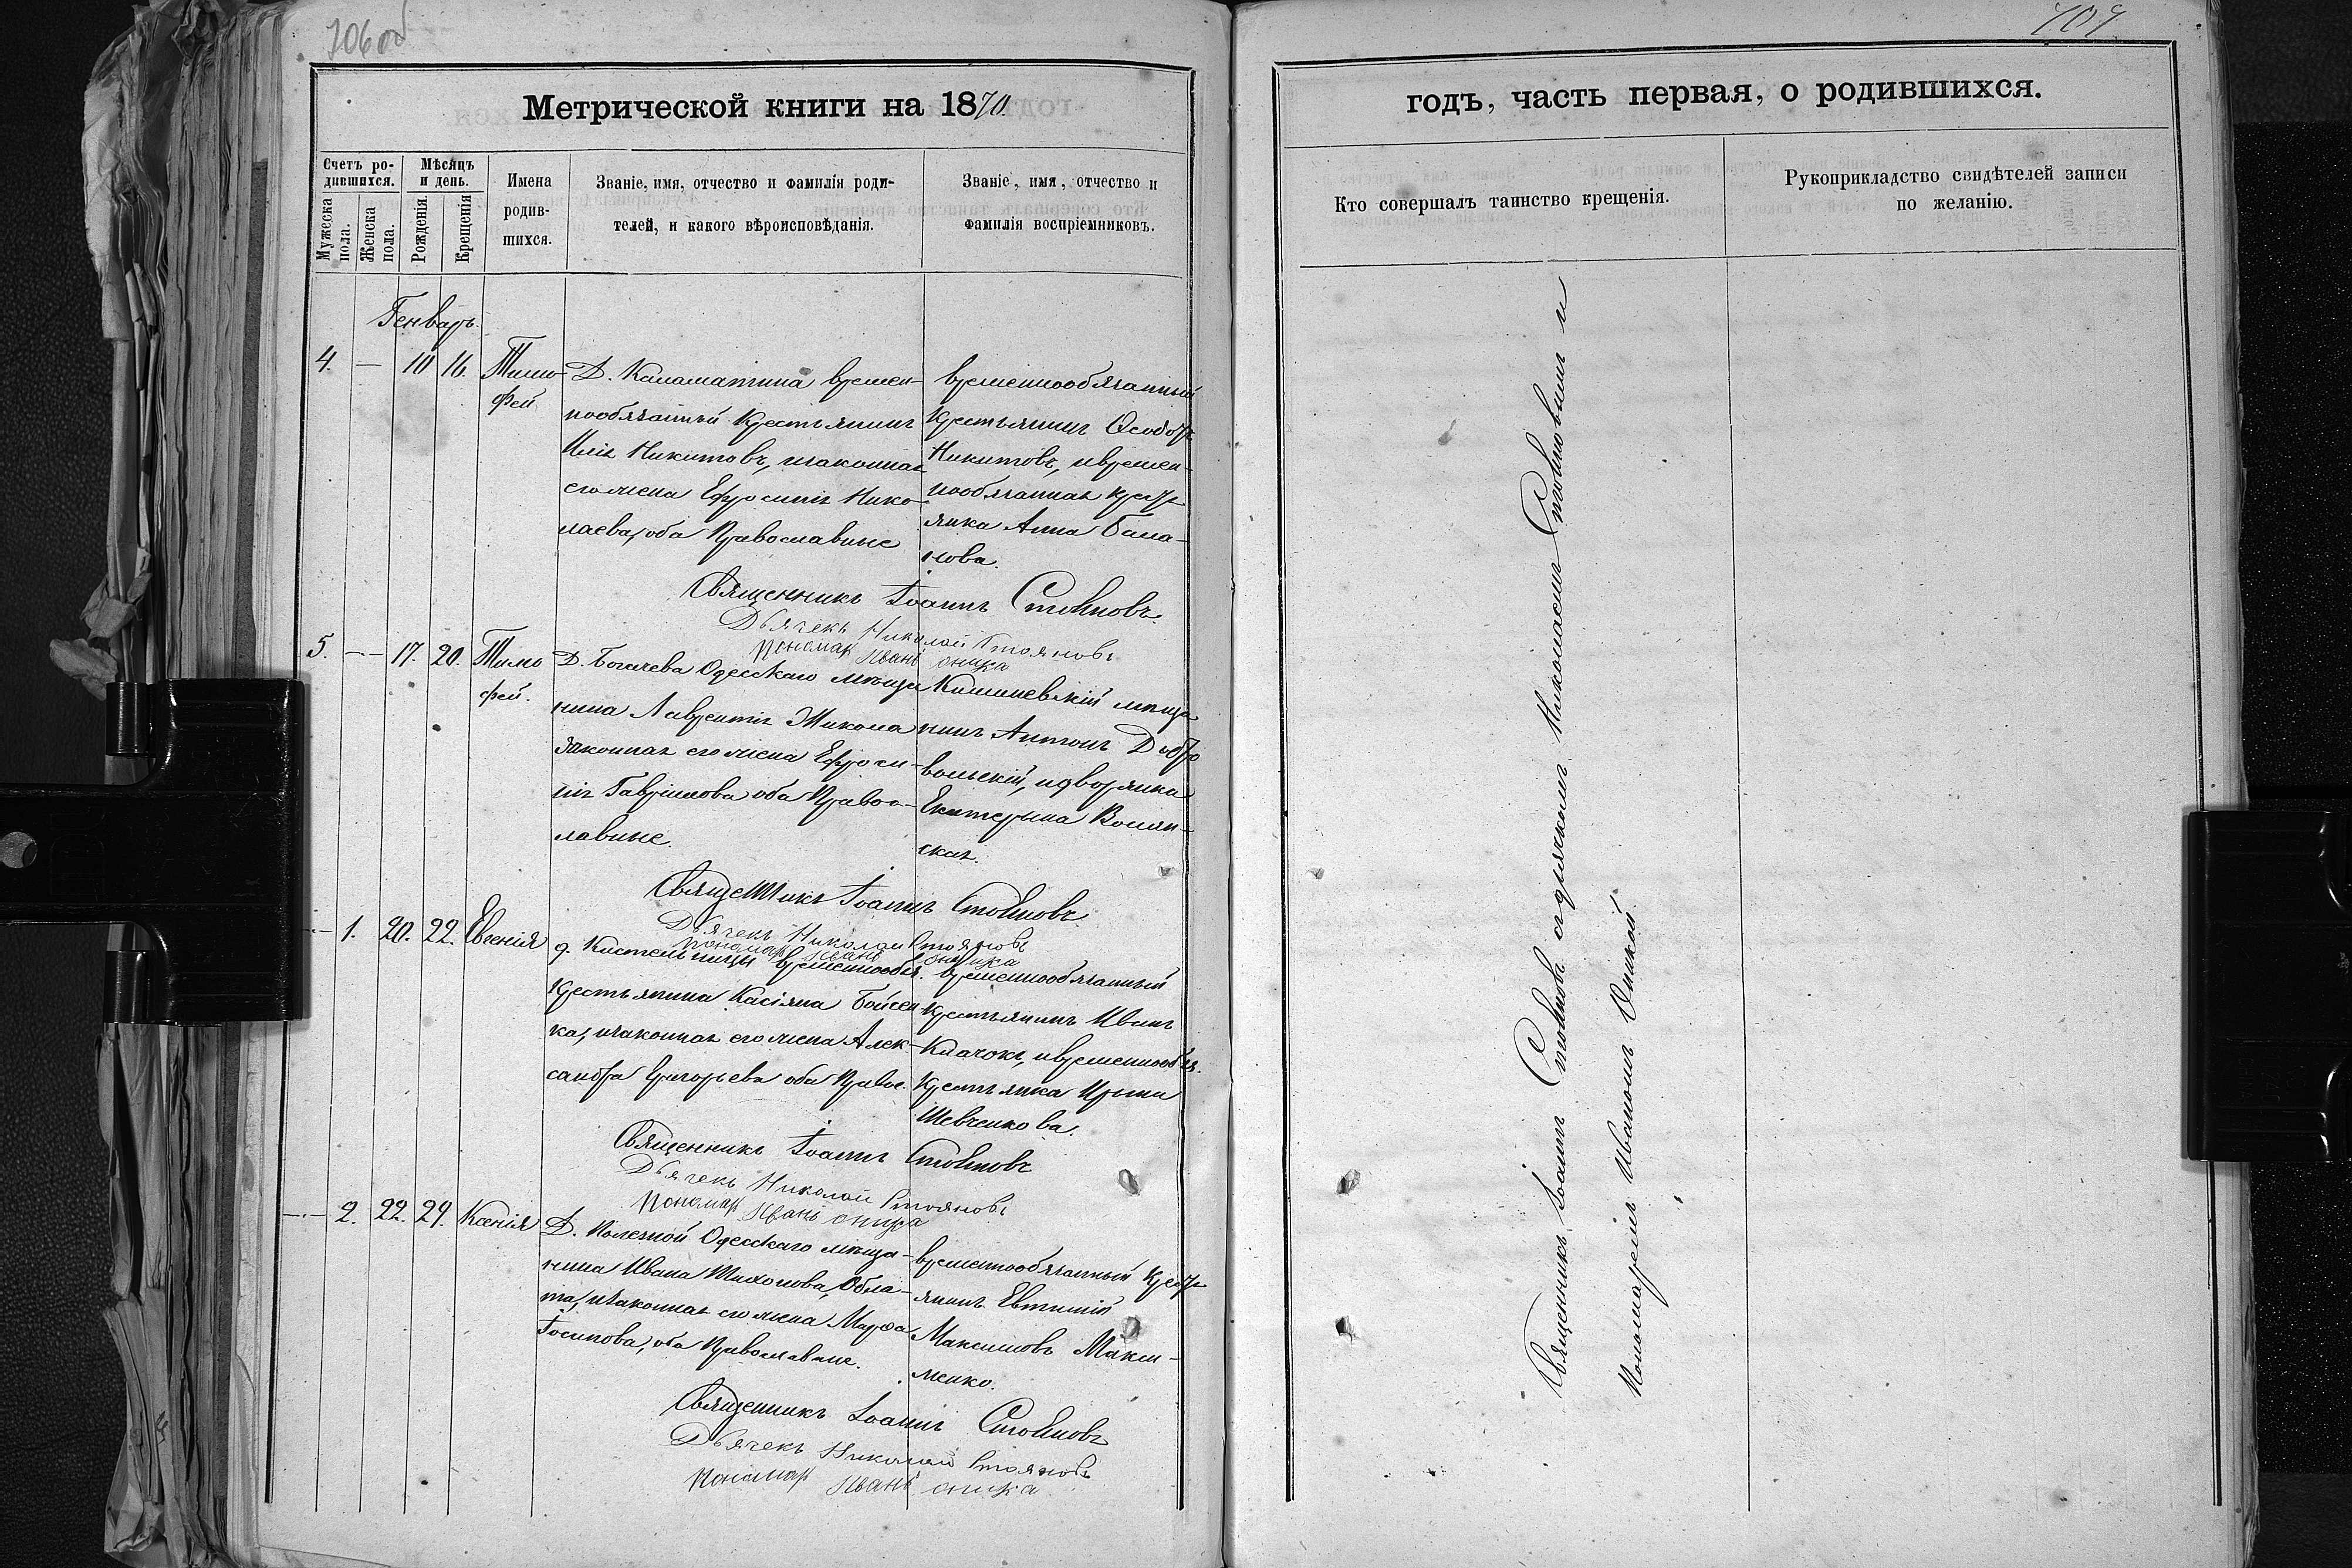 706 об
Метрической книги на 1870.
Счетъ ро-
дившихся.
Мѣсяцъ
и день.
Имена
родив-
шихся.
Званіе, имя, отчество и фамилія роди-
телей, и какого вѣроисповѣданія.
Званіе, имя, отчество и
фамилія воспріемниковъ.
Мужеска
пола.
Женска
пола.
Рожденія.
Крещенія
Генварь.
4. — 10 16.
Тимо-
фей
Д. Каламатина времен-
нообязанный крестьянинъ
Илія Никитовъ, и законная
его жена Ефросинія Нико-
лаева, оба Православные
временнообязанный
крестьянинъ Ѳеодоръ
Никитовъ, и времен-
нообязанная крестъ
янка Анна Бала-
нова.
Священникъ Іоаннъ Стояновъ.
Дьячекъ Николай Стояновъ
Пономар Иванъ Оника
5. — 17. 20.
Тимо
фей.
Д. Богачева Одесскаго мѣща
нина Лаврентія Жикола
законная его жена Ефроси-
нія Гаврилова оба Правос-
лавные.
Кишиневскій мѣща
нинъ Антонъ Добро
вольскій, и дворянка
Екатерина Волян-
ская.
Священникъ Іоаннъ Стояновъ
Дьячекъ Николай Стояновъ
Пономар Иванъ Оника
— 1. 20. 22. Евгенія
д. Кистельницы временнообя.
крестьянина Касіяна Бойчен
ка, и законная его жена Алек-
сандра Григорьева оба Правос.
временнообязанный
крестьянинъ Иванъ
Клачокъ, и временнообяз.
крестьянка Ирина
Шевченкова.
Священникъ Іоаннъ Стояновъ
Дьячекъ Николай Стояновъ
Пономар Иванъ Оника
— 2. 22. 29. Ксенія
Д. Полезной Одесскаго мѣща-
нина Ивана Тихонова, Обла-
та, и законная его жена Марѳа
Іосипова, оба Православные.
временнообязанный крестъ
янинъ Евтимій
Максимовъ Макси-
менко.
Священникъ Іоаннъ Стояновъ
Дьячекъ Николай Стояновъ
Пономар Иванъ Оника
707
годъ, часть первая, о родившихся.
Кто совершалъ таинство крещенія.
Рукоприкладство свидѣтелей записи
по желанію.
Священникъ Іоаннъ Стояновъ съ дьячкомъ Николаемъ Стояновымъ и
Пономаремъ Иваномъ Оникой.